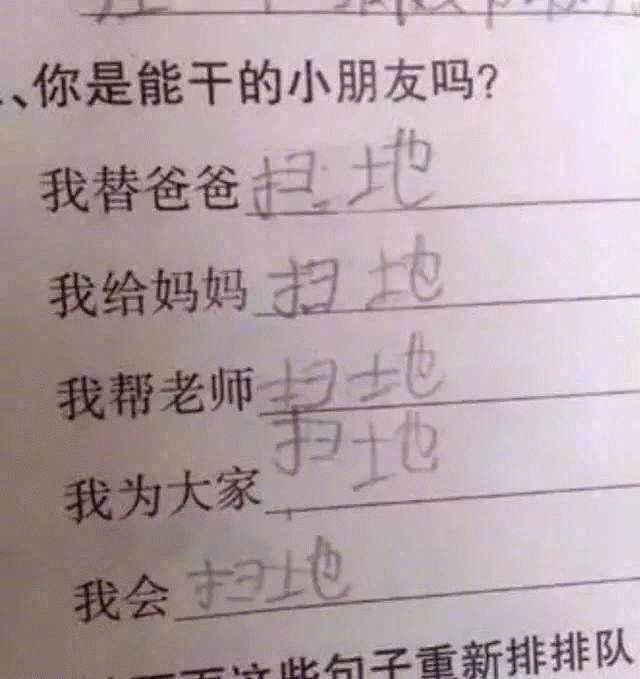 、你是能干的小朋友吗?
我替爸爸扫地
我给妈妈扫地
我帮老师扫地
我为大家扫地
我会扫地
下面这些句子重新排排队